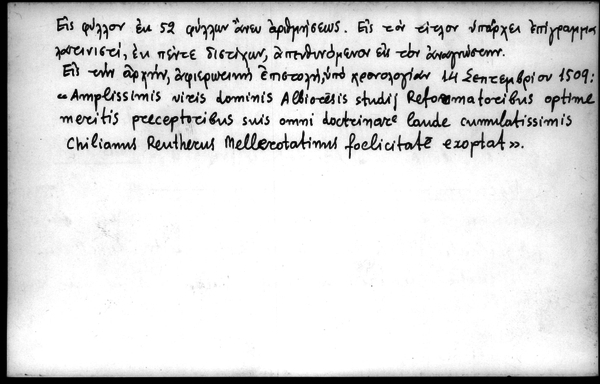 Εἰς φύλλον ἐκ 52 φύλλων ἄνευ ἀριθμήσεως. Εἰς τὸν τίτλον ὑπάρχει ἐπίγραμμα
λατινιστί, ἐκ πέντε διστίχων, ἀπευθυνόμενον εἰς τὸν ἀναγνώστην.
Εἰς τὴν ἀρχήν, ἀφιερωτικὴ ἐπιστολή, ὑπὸ χρονολογίαν 14 Σεπτεμβρίου 1509:
«Amplissimis viris dominis Albiorēsis studij Reformatoribus optime
meritis preceptoribus suis omni doctrinare laude cumulatissimis
Chilianus Reutherus Mellerstatinus foelicitatē exoptat».